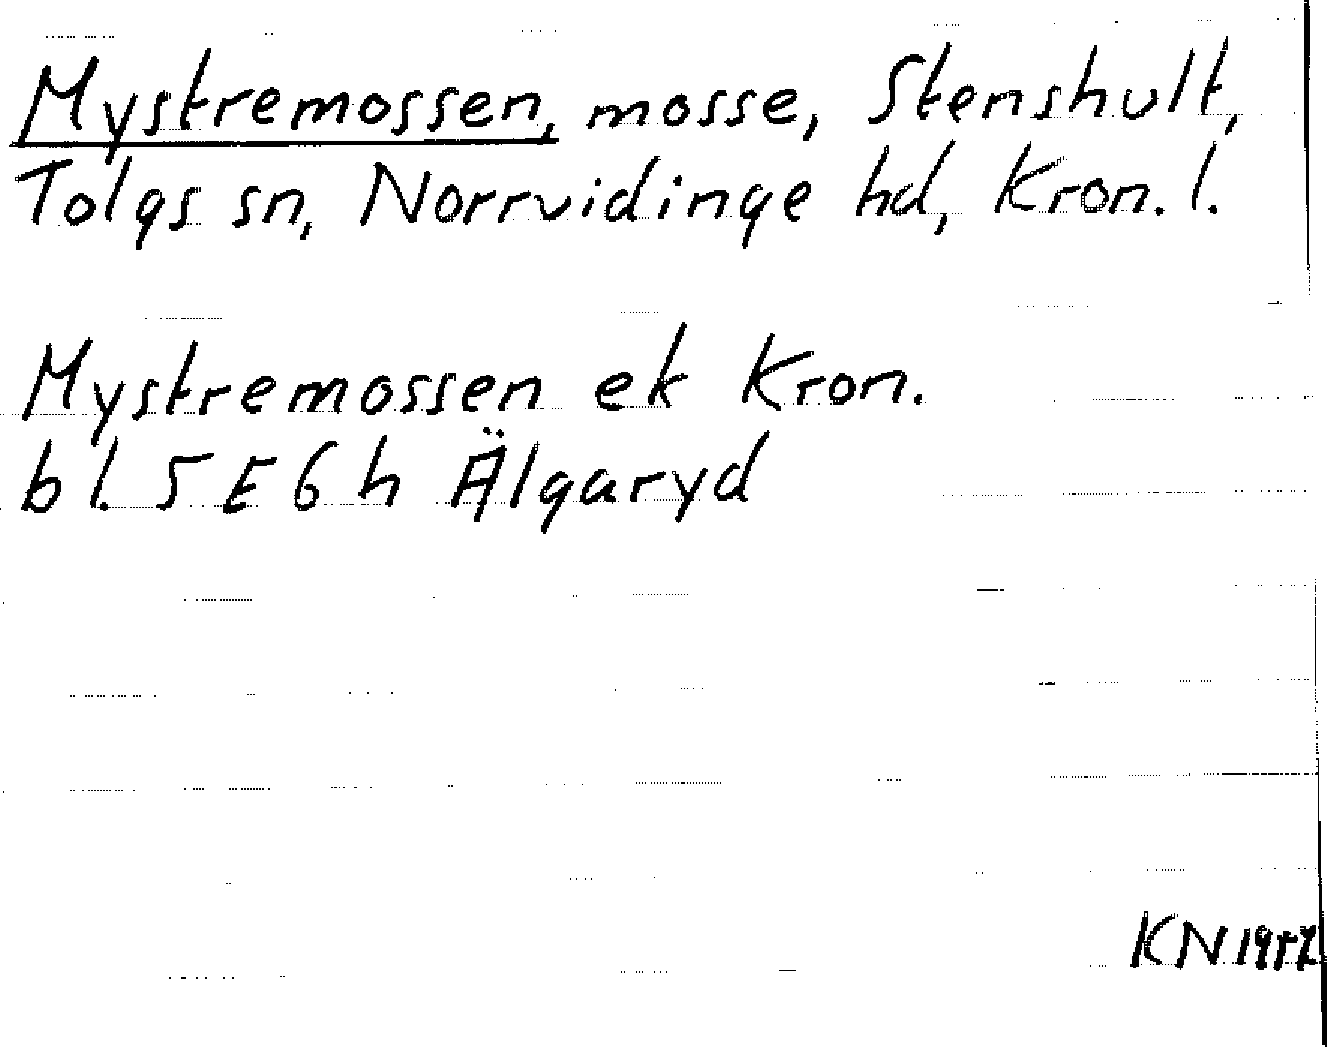 Mystremossen, mosse, Stenshult,
Tolgs sn, Norrvidinge hd, Kron. l.
Mystremossen ek Kron.
bl. 5E6h Älgaryd
KN